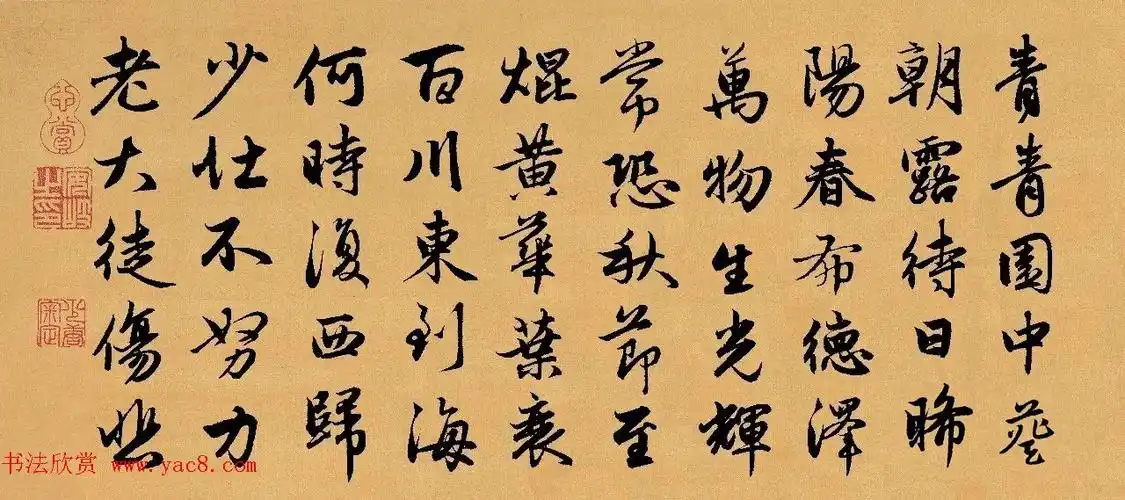 青青園中葵
朝露待日晞
陽春布德澤
萬物生光輝
常恐秋節至
焜黃華葉衰
百川東到海
何時復西歸
少壯不努力
老大徒傷悲
心賞
书法欣赏 www.yac8.com